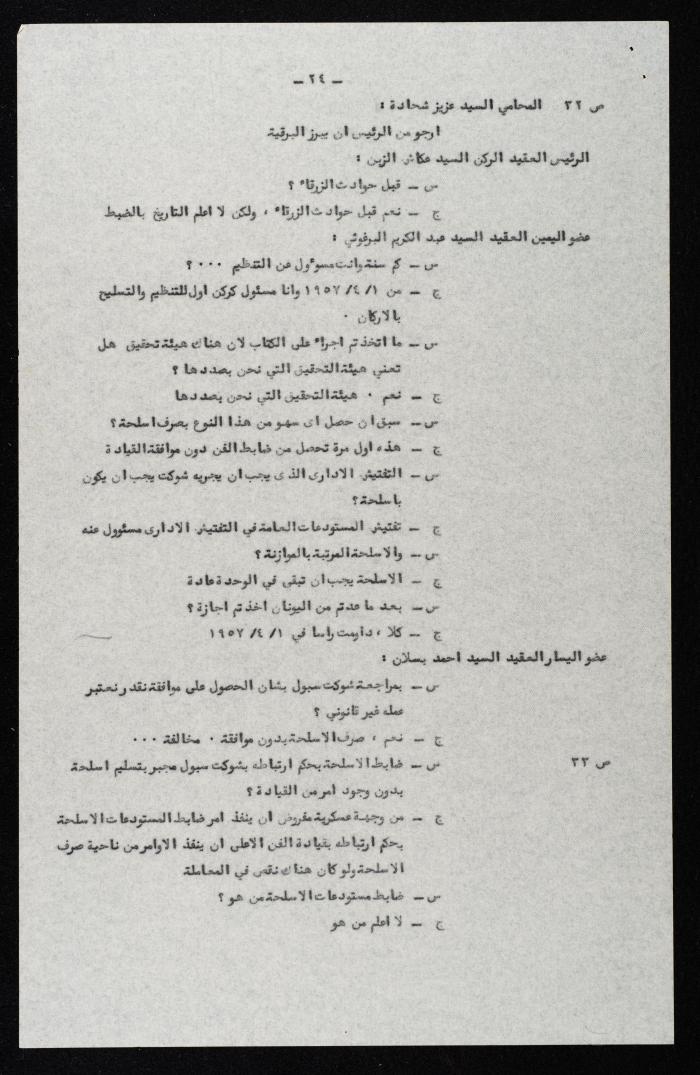 ـ ٢٤ ـ
ص ٣٢ المحامي السيد عزيز شحادة :
ارجو من الرئيس ان يبرز البرقية
الرئيس العقيد الركن السيد عكاش الزبن :
س ـ قبل حوادث الزرقاء ؟
ج ـ نعم قبل حوادث الزرقاء ، ولكن لا اعلم التاريخ بالضبط
عضو اليمين العقيد السيد عبد الكريم البرغوثي :
س ـ كم سنة وانت مسوءول عن التنظيم ٠٠٠ ؟
ج ـ من ١/ ٤/ ١٩٥٧ وانا مسئول كركن اول للتنظيم والتسليح
بالاركان ٠
س ـ ما اتخذتم اجراء على الكتاب لان هناك هيئة تحقيق هل
تعني هيئة التحقيق التي نحن بصددها ؟
ج ـ نعم ٠ هيئة التحقيق التي نحن بصددها
س ـ سبق ان حصل اى سهو من هذا النوع بصرف اسلحة ؟
ج ـ هذه اول مرة تحصل من ضابط الفن دون موافقة القيادة
س ـ التفتيش الادارى الذى يجب ان يجريه شوكت يجب ان يكون
باسلحة ؟
ج ـ تفتيش المستودعات العامة في التفتيش الادارى مسئوول عنه
س ـ والاسلحة المرتبة بالموازنة ؟
ج ـ الاسلحة يجب ان تبقى في الوحدة عادة
س ـ بعد ما عدتم من اليونان اخذتم اجازة ؟
ج ـ كلا ، داومت راسا في ١/ ٤/ ١٩٥٧
عضو اليسار العقيد السيد احمد بسلان :
س ـ بمراجعة شوكت سبول بشان الحصول على موافقة نقدر نعتبر
عمله غير قانوني ؟
ج ـ نعم ، صرف الاسلحة بدون موافقة ٠ مخالفة ٠٠٠
ص ٣٣ س ـ ضابط الاسلحة بحكم ارتباطه بشوكت سبول مجبر بتسليم اسلحة
بدون وجود امر من القيادة ؟
ج ـ من وجهة عسكرية مفروض ان ينفذ امر ضابط المستودعات الاسلحة
بحكم ارتباطه بقيادة الفن الاعلى ان ينفذ الاوامر من ناحية صرف
الاسلحة ولو كان هناك نقص في المعاملة
س ـ ضابط مستودعات الاسلحة من هو ؟
ج ـ لا اعلم من هو